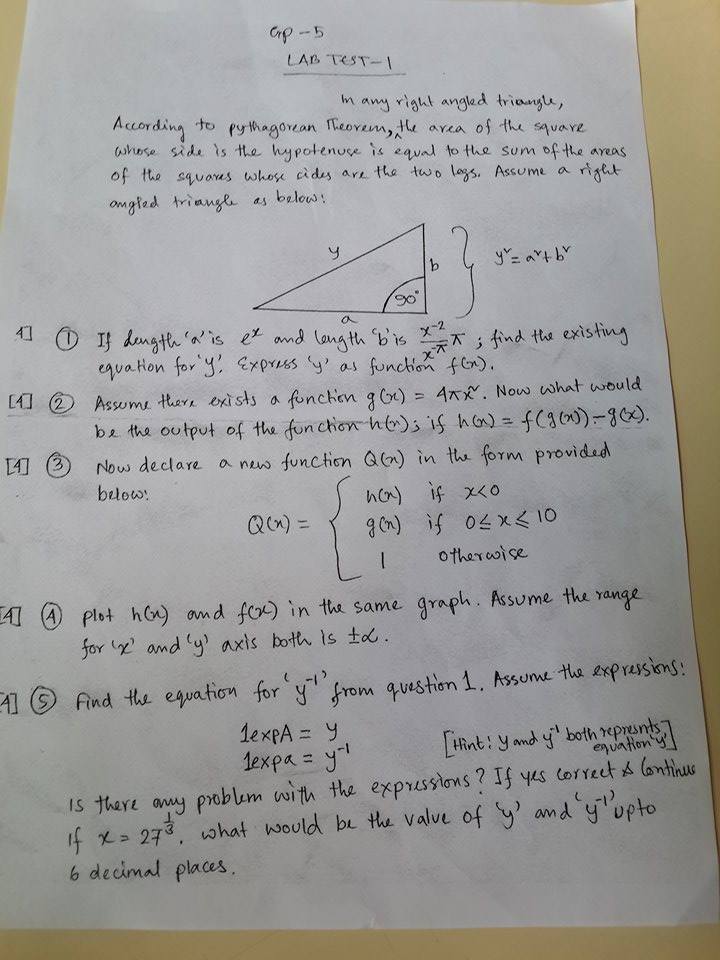 Gp - 5
LAB TEST-1
In any right angled triangle,
According to pythagorean Theorem, the area of the square
whose side is the hypotenuse is equal to the sum of the areas
of the squares whose cides are the two legs. Assume a right
angled triangle as below:
y
b
a
90°
y² = a² + b²
4] ① If length 'a' is e^x and length 'b' is (x-2)/(x-π) π ; find the existing
equation for 'y'. Express 'y' as function f(x).
[4] ② Assume there exists a function g(x) = 4πx². Now what would
be the output of the function h(x); if h(x) = f(g(x)) - g(x).
[4] ③ Now declare a new function Q(x) in the form provided
below:
Q(x) = {
h(x) if x<0
g(x) if 0 ≤ x ≤ 10
1 otherwise
4] ④ plot h(x) and f(x) in the same graph. Assume the range
for 'x' and 'y' axis both is ±α.
4] ⑤ Find the equation for 'y⁻¹' from question 1. Assume the expressions:
1expA = y
1expa = y⁻¹
[Hint: y and y⁻¹ both represnts
equation 'y']
Is there any problem with the expressions? If yes correct & Continue
If x = 27^(1/3), what would be the value of 'y' and 'y⁻¹' upto
6 decimal places.